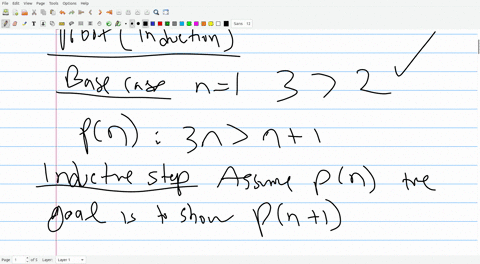 File Edit View Journal Page Tools Options Help
Proof (Induction)
Base case n=1 3 > 2 ✓
P(n) : 3n > n+1
Inductive step Assume P(n) the
goal is to show P(n+1)
Page 1 of 5 Layer Layer 1